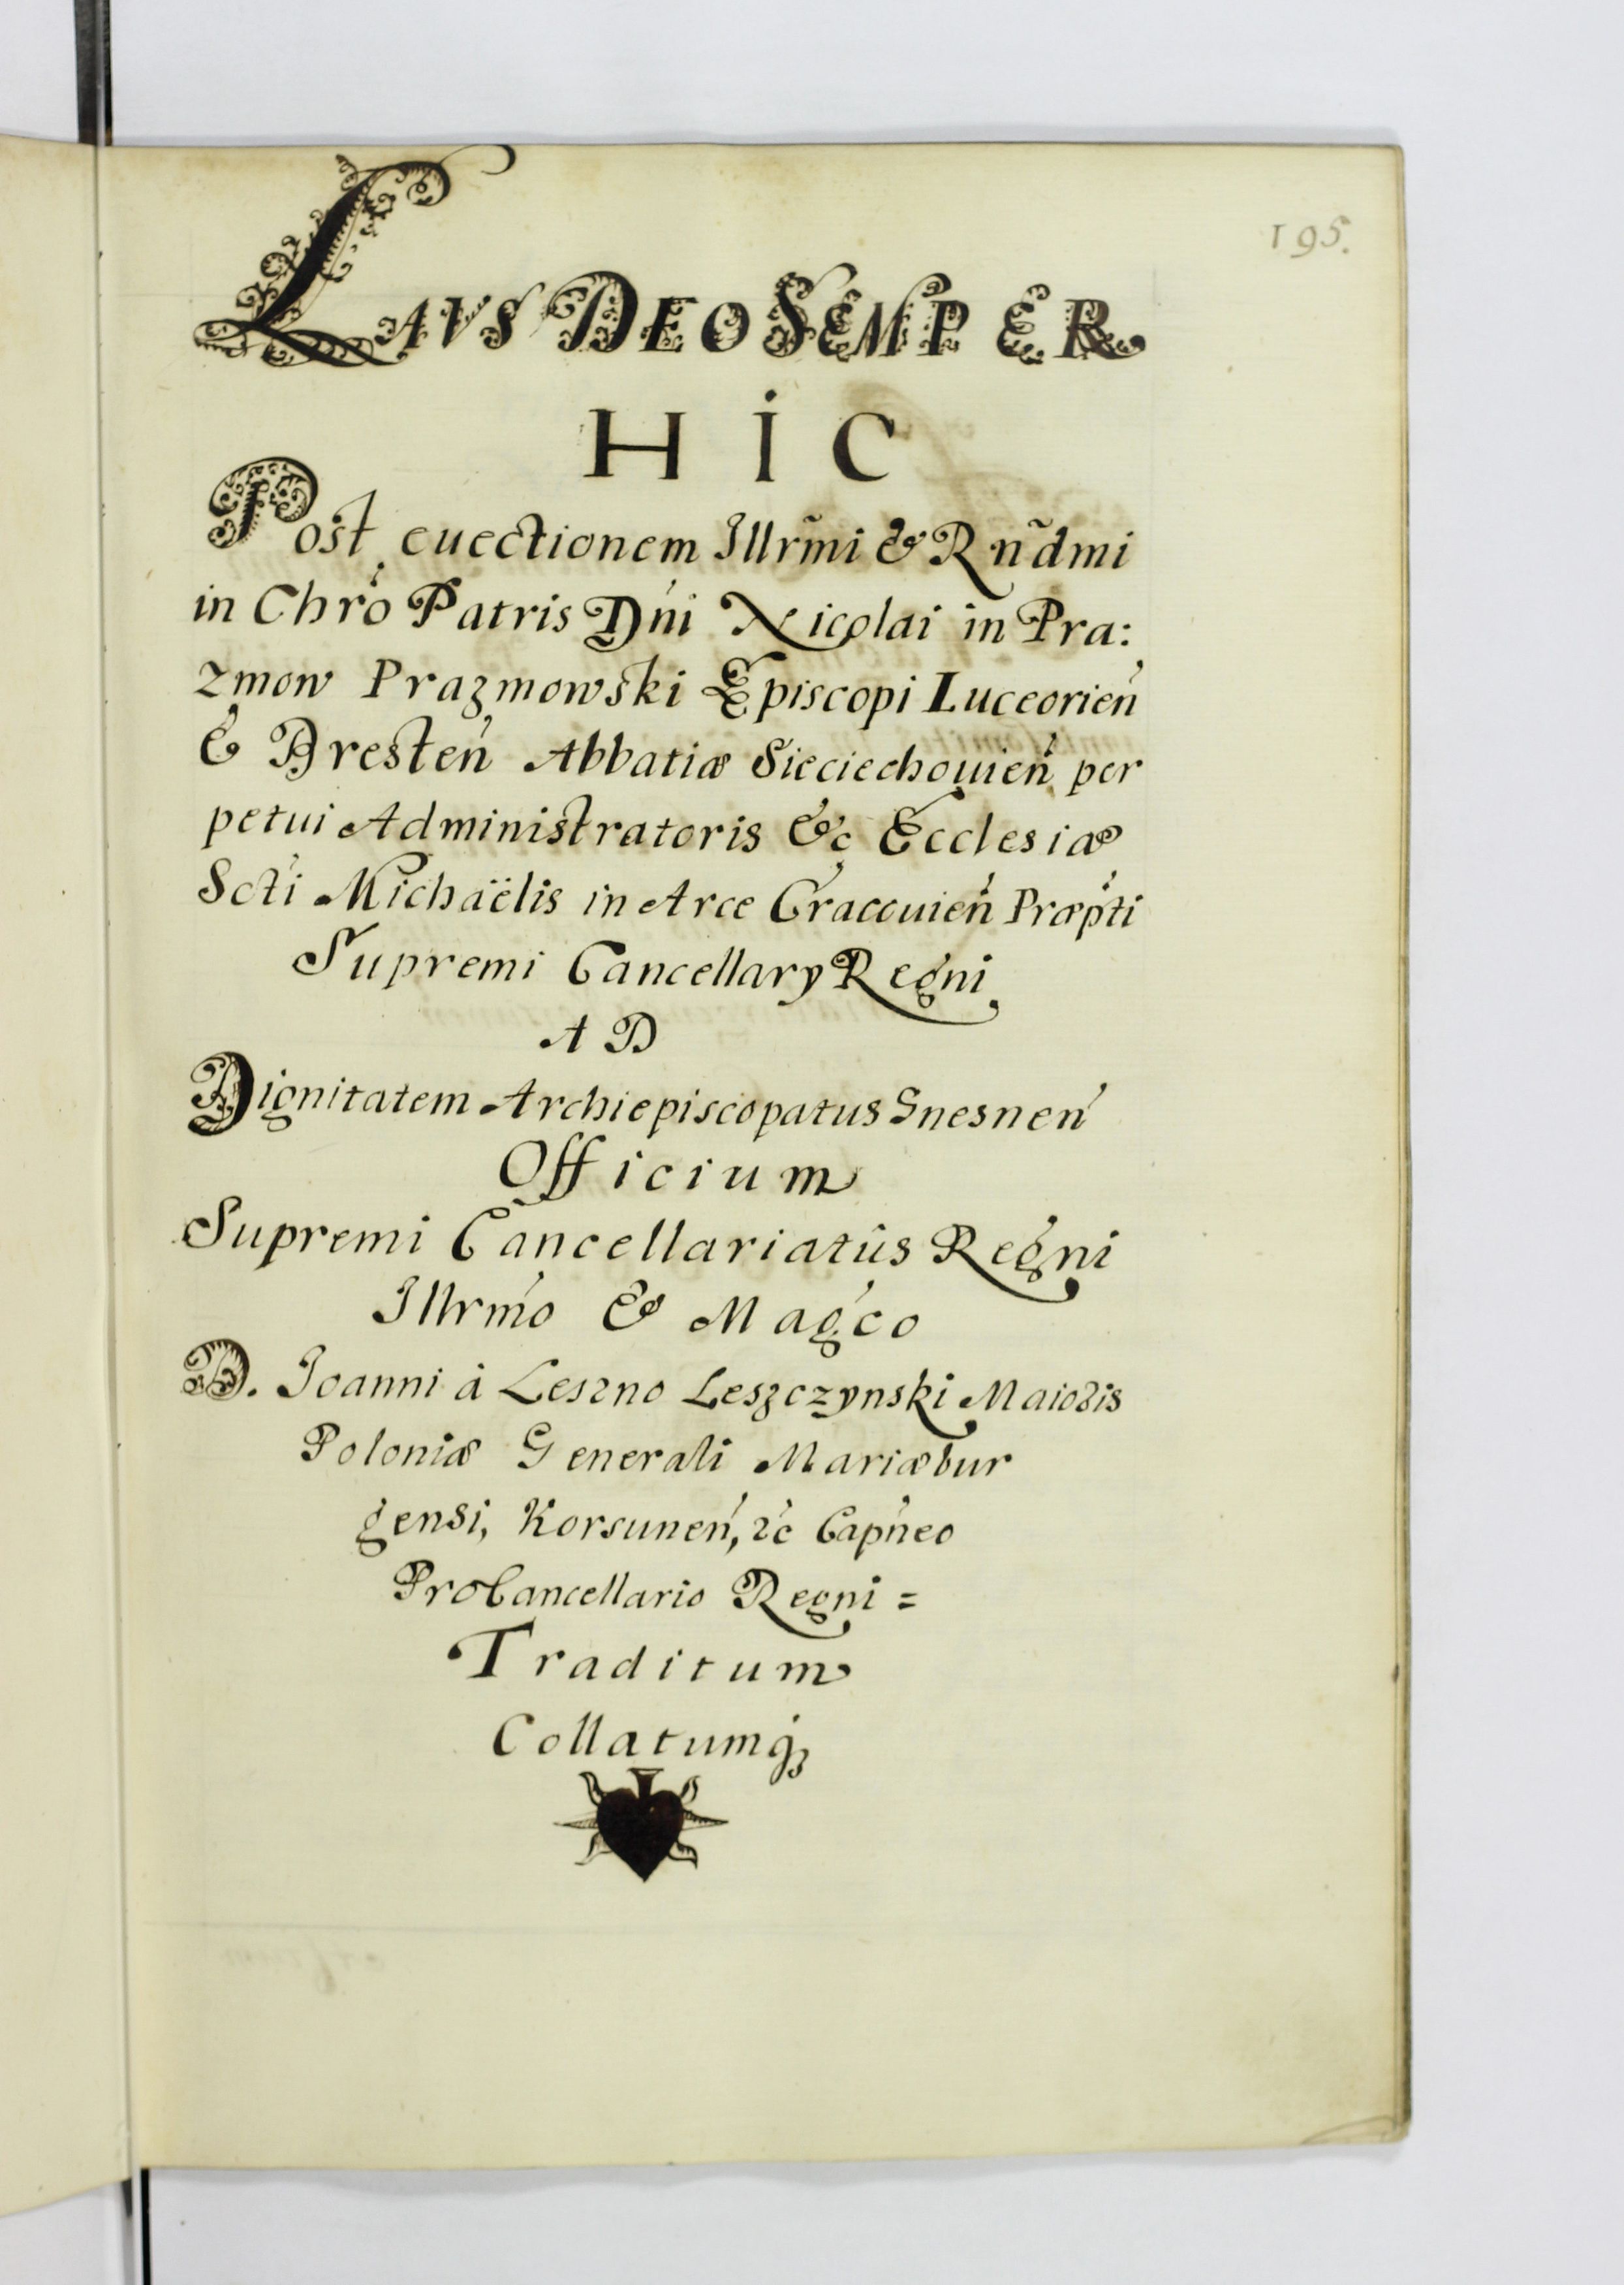 195.
LAVS DEO SEMPER
HiC
Post euectionem Illrm̃i & Rñdmi
in Chr̓o Patris Dńi Nicolai in Pra:
zmow Prazmowski Episcopi Luceorień
& Brestеń Abbatiæ Sieciechouień per
petui Administratoris &c Ecclesiæ
Scti̓ Michaëlis in Arce Cracouień Præpti̓
Supremi Cancellary Regni
AD
Dignitatem Archiepiscopatus Gnesneń
Officium
Supremi Cancellariatûs Regni
Illrmo̓ & Magc̓o
D. Joanni à Leszno Leszczynski Maioris
Poloniæ Generali Mariæbur
gensi, Korsuneń, &c Capńeo
ProCancellario Regni =
Traditum
Collatumqꝫ